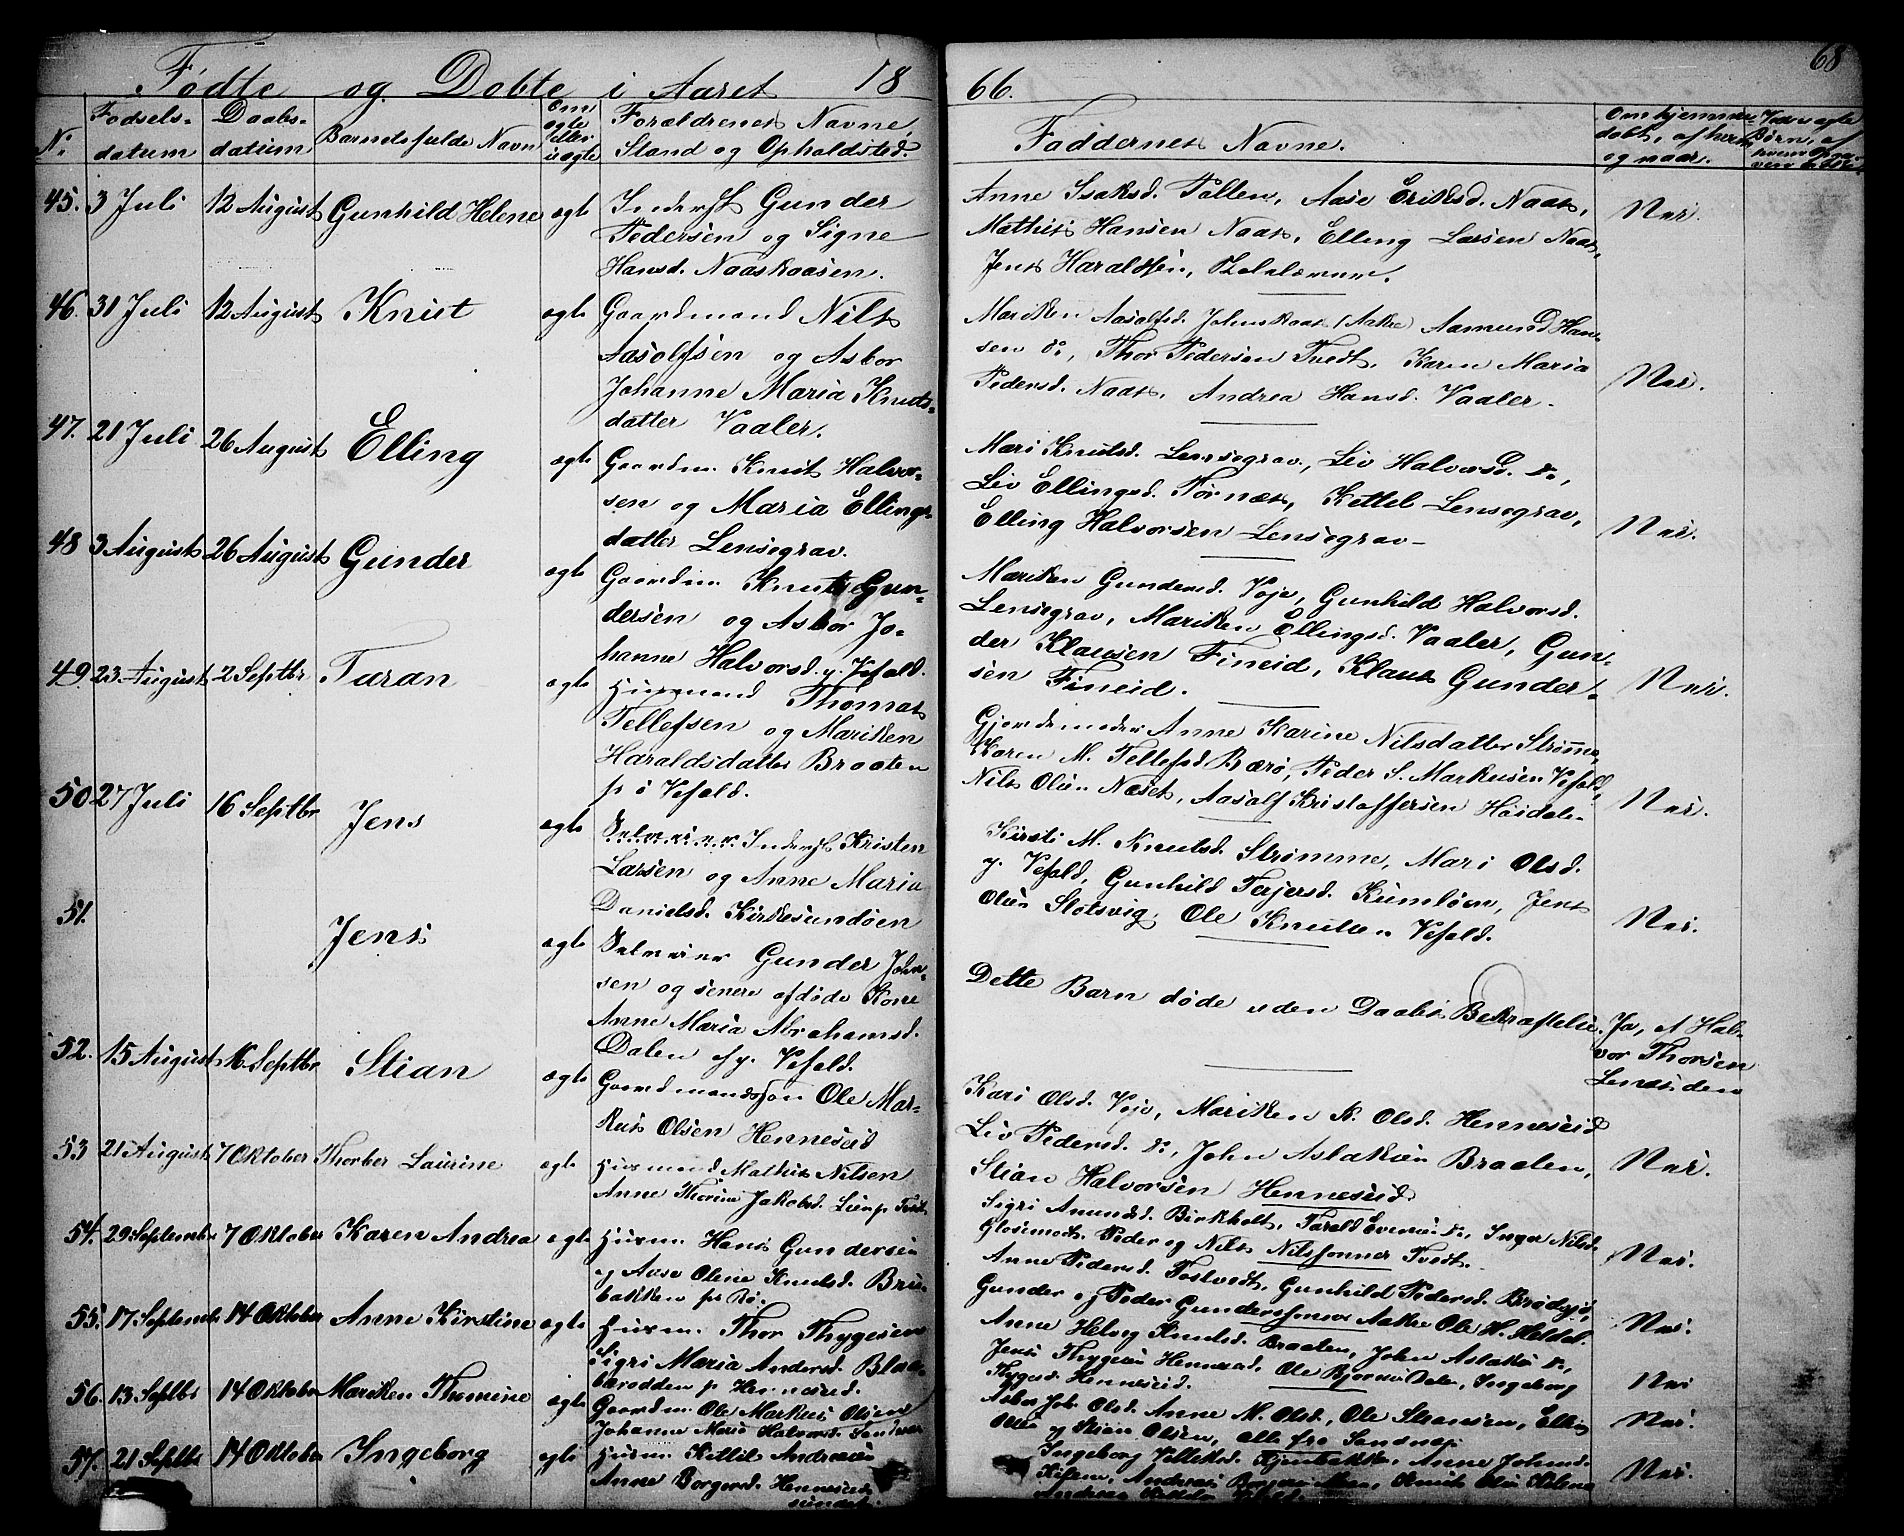 Fødte og Døbte i Aaret 18
66.
68
No Fødselsdatum Daabsdatum Barnets fulde Navn Om ægte eller uægte Forældrenes Navne, Stand og Opholdssted.
Faddernes Navne. Om hjemmedøbt, af hvem og naar.
45. 3 Juli 12 August Gunhild Helene ægte Inderst Gunder
Pedersen og Signe
Hansd. Naaskaasen.
Anne Isaksd. Tallen, Aase Eriksd. Naas,
Mathis Hansen Naas, Elling Larsen Naas,
Jens Haraldsen,
Nei.
46. 31 Juli 12 August Knut ægte Gaardmand Nils
Aasolfsen og Asbor
Johanne Maria Knuds-
datter Vaaler.
Mariken Aasolfsd. (Aakre) Aamund Han-
sen do, Thor Pedersen Tvedt, Karen Maria
Pedersd. Naas, Andrea Hansd. Vaaler.
Nei.
47. 21 Juli 26 August Elling ægte Gaardm. Knut Halvor-
sen og Maria Ellings-
datter Lensegrav.
Mari Knutsd. Lensegrav, Liv Halvorsd. do,
Liv Ellingsd. Tørnæs, Kettel Lensegrav,
Elling Halvorsen Lensegrav
Nei.
48 3 August 26 August Gunder ægte Gaardm. Knut Gun-
dersen og Asbor Jo-
hanne Halvorsd. y. Vefald.
Mariken Gundersd. Voje, Gunhild Halvorsd.
Lensegrav, Mariken Ellingsd. Vaaler, Gun-
der Klausen Fineid, Klaus Gunder-
sen Fineid.
Nei.
49. 23 August 2 Septbr Taran ægte Husmand Thomas
Tellefsen og Mariken
Haraldsdatter Braaten
p ø Vefald.
Gjordemoder Anne Karine Nilsdatter Strømme,
Karen M. Tellefsd Bærø, Peder S. Markusen Vefald,
Nils Olsen Næset, Aasolf Kristoffersen Høidalen
Nei.
50 27 Juli 16 Septbr Jens ægte Inderst Kristen
Larsen og Anne Maria
Danielsd. Kirkesundøen
Kirsti M. Knutsd. Strømme, Mari Olsd.
y. Vefald, Gunhild Terjersd. Kumløen, Jens
Olsen Slotsvig, Ole Knutsen Vefald.
Nei.
51. Jens ægte Selveier Gunder John-
sen og senere afdøde Kone
Anne Maria Abrahamsd.
Dalen af y. Vefald.
Dette Barn døde uden Daabs Bekræftelse.
Ja, A Hal-
vor Thorsen
52. 15 August 16 Septbr Stian ægte Gaardmandssøn Ole Mar-
kus Olsen Henneseid
Kari Olsd. Voje, Mariken K. Olsd. Henneseid
Liv Pedersd. do, John Aslaksen Braaten,
Stian Halvorsen Henneseid
Nei.
53 21 August 7 Oktober Thorber Laurine ægte Husmand Mathis Nilsen
Anne Thorine Jakobsd.
Sigri Amundsd. Birkholt, Tarald Evensen do, Inger Nilsd.
Peder og Nils Nilssønner Tvedt.
54. 29 Septembr 7 Oktober Karen Andrea ægte Husm. Hans Gundersen
og Aase Olene Knutsd. Bru-
bakken
Nei.
Anne Pedersd. Tostvedt, Gunhild Pedersd. Brødsjø,
Gunder og Peder Gunderssønner Aakre Ole H. Heldal.
55. 17 Septembr 14 Oktober Anne Kirstine ægte Husm. Thor Thygesen
Sigri Maria Andersd. Blaa-
bærodden p Henneseid.
Nei.
Anne Helvig Knutsd. Braaten, John Aslaksen do,
Jens Thygesen Henneseid, Ole Bjørnsen Dalen, Ingeborg
Thygesd. Henneseid.
56. 13 Septbr 14 Oktober Mariken Thomine ægte Gaardm. Ole Markus Olsen
Johanne Maria Halvorsd. Sandnæs
Nei
Asbor Joh. Olsd. Anne M. Olsd, Ole Stiansen, Elling
Olsen og Stian Olsen, alle fra Sandnæs
Nei.
57. 21 Septbr 14 Oktober Ingeborg ægte Husm. Kittil Andersen
Anne Borgersd. Henneseid-
sundet.
Ingeborg Anne Johnsd.
Nei.